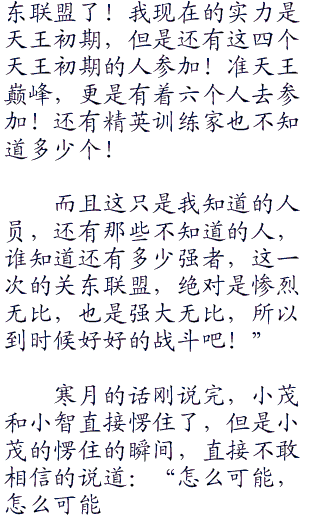 东联盟了！我现在的实力是
天王初期，但是还有这四个
天王初期的人参加！准天王
巅峰，更是有着六个人去参
加！还有精英训练家也不知
道多少个！
而且这只是我知道的人
员，还有那些不知道的人，
谁知道还有多少强者，这一
次的关东联盟，绝对是惨烈
无比，也是强大无比，所以
到时候好好的战斗吧！”
寒月的话刚说完，小茂
和小智直接愣住了，但是小
茂的愣住的瞬间，直接不敢
相信的说道：“怎么可能，
怎么可能